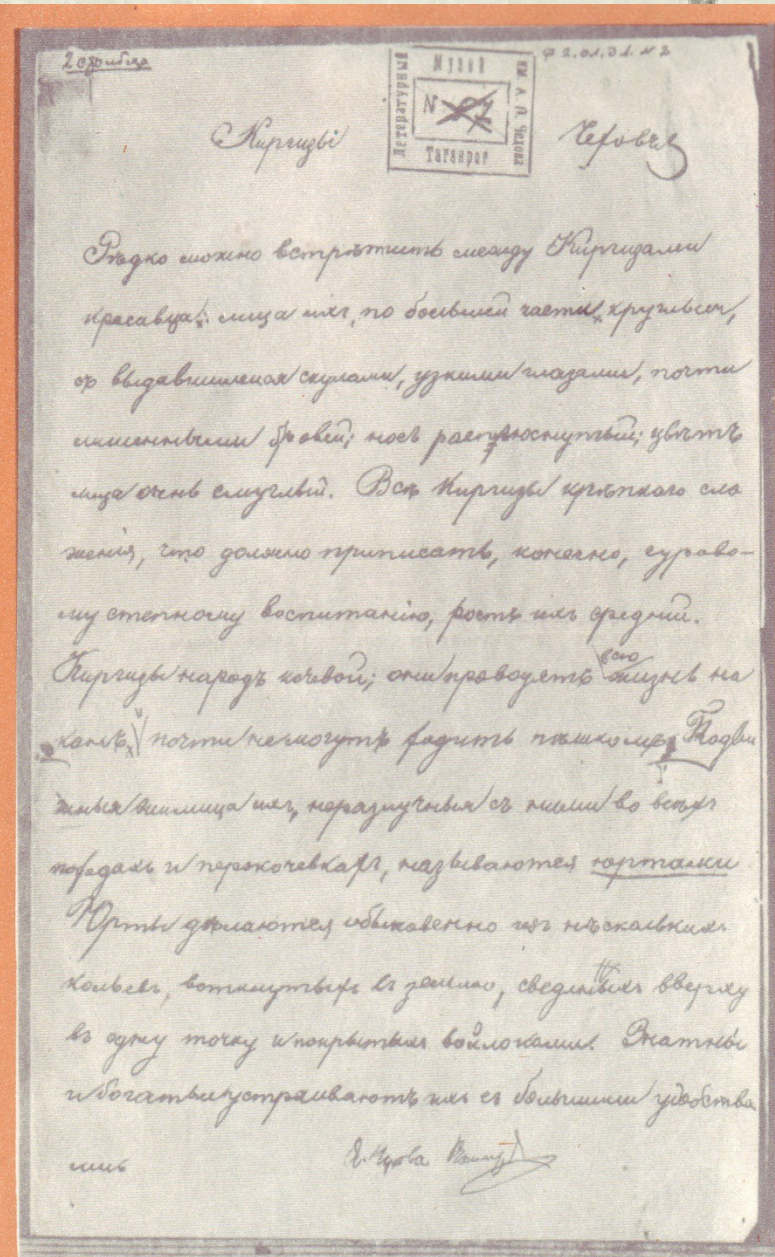 2 октября
Ф 2. ол. Э1. № 2
Литературный
Музей
им. А. П. Чехова
№
Таганрог
Киргизы Чехова
Рѣдко можно встрѣтить между Киргизами
красавца: лица ихъ, по большей части, круглыя,
съ выдавшимися скулами, узкими глазами, почти
лишенными бровей; носъ расплюснутый; цвѣтъ
лица очень смуглый. Всѣ Киргизы крѣпкаго сло
женія, что должно приписать, конечно, сурово-
му степному воспитанію, ростъ ихъ средній.
Киргизы народъ кочевой; они проводятъ всю жизнь на
конѣ, и почти не могутъ ходить пѣшкомъ. Подви
жныя жилища ихъ, неразлучныя съ ними во всѣхъ
походахъ и перекочевкахъ, называются юртами
Юрты дѣлаются обыкновенно изъ нѣсколькихъ
кольевъ, воткнутыхъ въ землю, сведенныхъ вверху
въ одну точку и покрытыхъ войлоками. Знатныи
и богатыи устраиваютъ ихъ съ большими удобства
ми